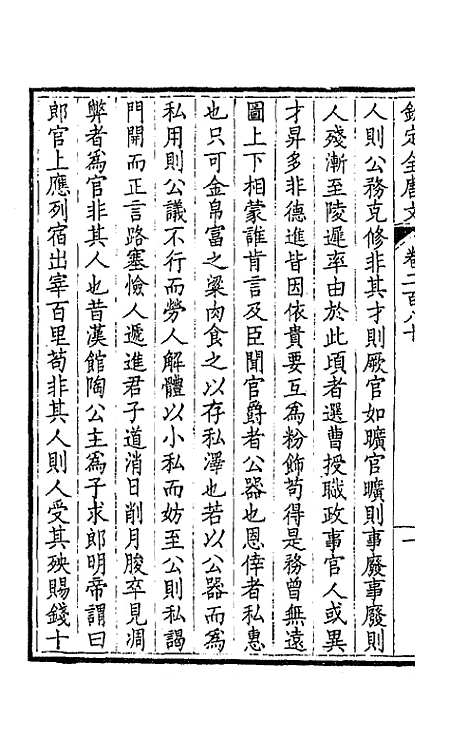 欽定全唐文 卷二百八十 一
人則公務克修非其才則厥官如曠官曠則事廢事廢則
人殘漸至陵遲率由於此頃者選曹授職政事官人或異
才昇多非德進皆因依貴要互為粉飾苟得是務曾無遠
圖上下相蒙誰肯言及臣聞官爵者公器也恩倖者私惠
也只可金帛富之粱肉食之以存私澤也若以公器而為
私用則公議不行而勞人解體以小私而妨至公則私謁
門開而正言路塞憸人遞進君子道消日削月朘卒見凋
弊者為官非其人也昔漢館陶公主為子求郎明帝謂曰
郎官上應列宿出宰百里苟非其人則人受其殃賜錢十